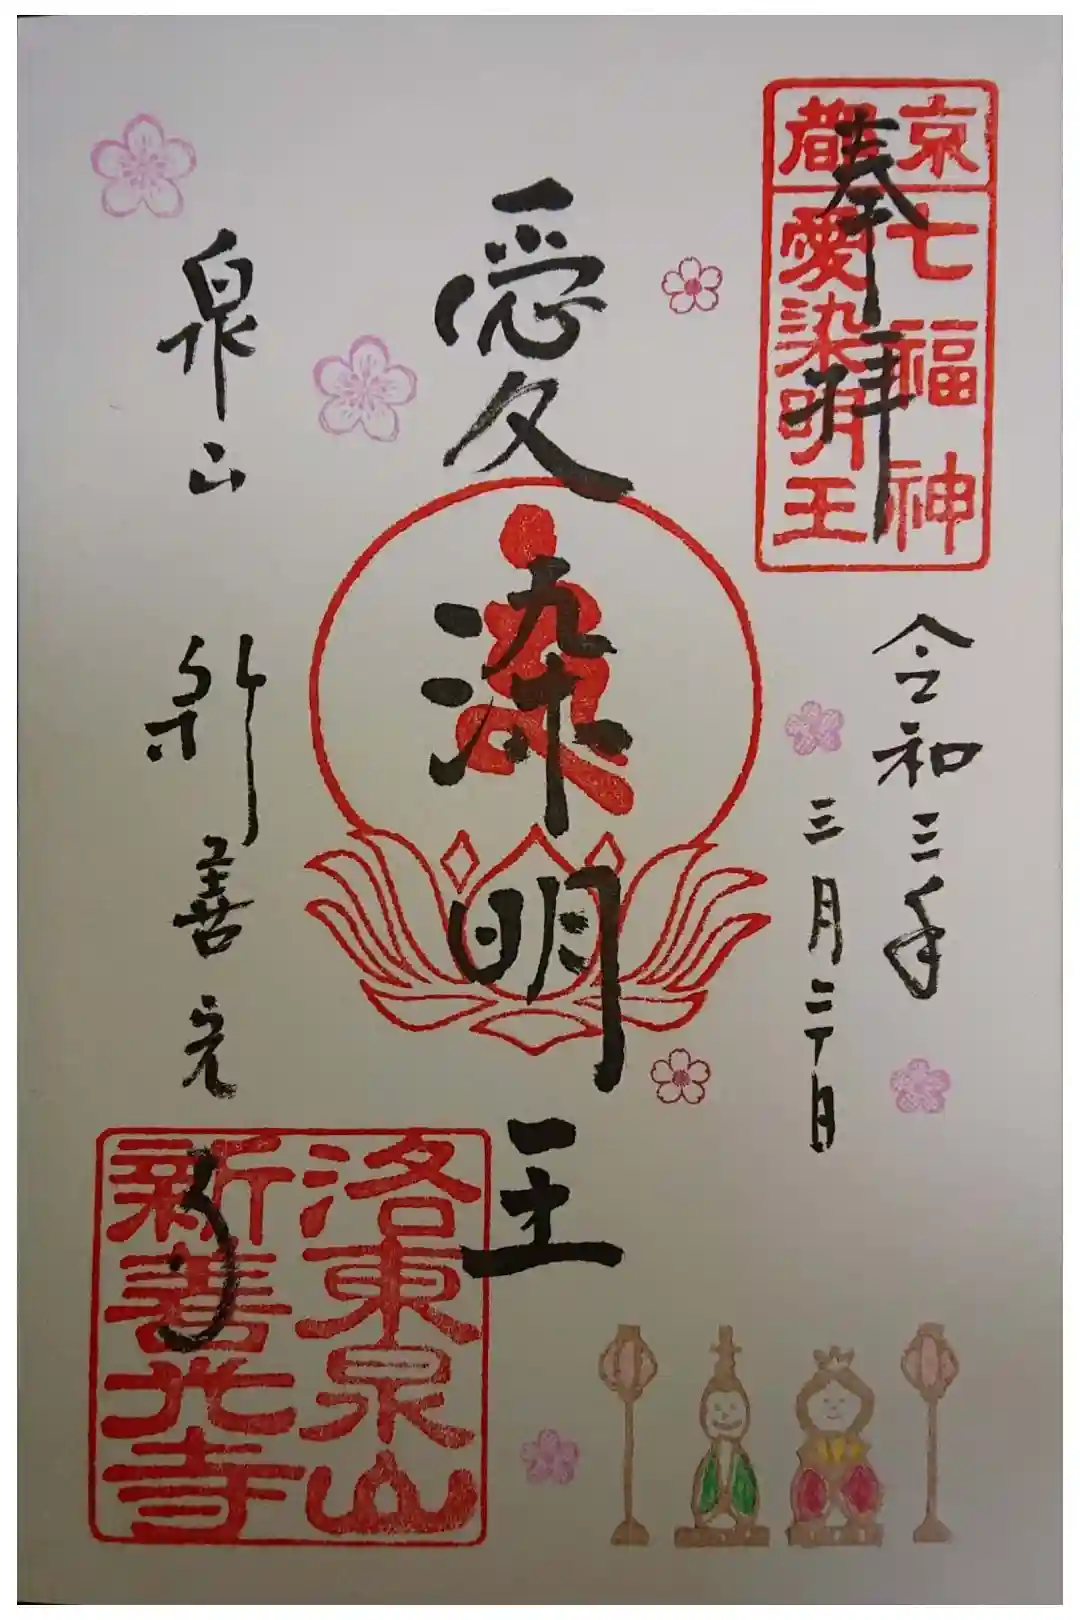 奉拝
京都
七福神
愛染明王
令和三年
三月二十日
愛染明王
泉山
新善光寺
洛東泉山
新善光寺